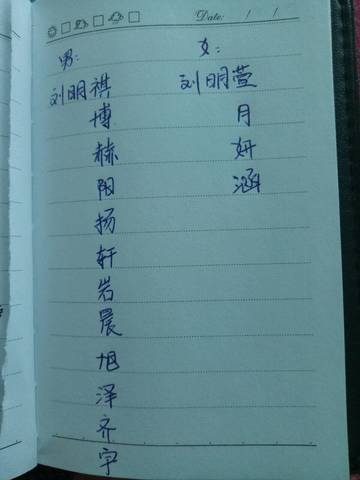 Date: / /
男: 女:
刘明祺 刘明萱
博 月
赫 妍
阳 涵
扬
轩
岩
晨
旭
泽
齐
宇